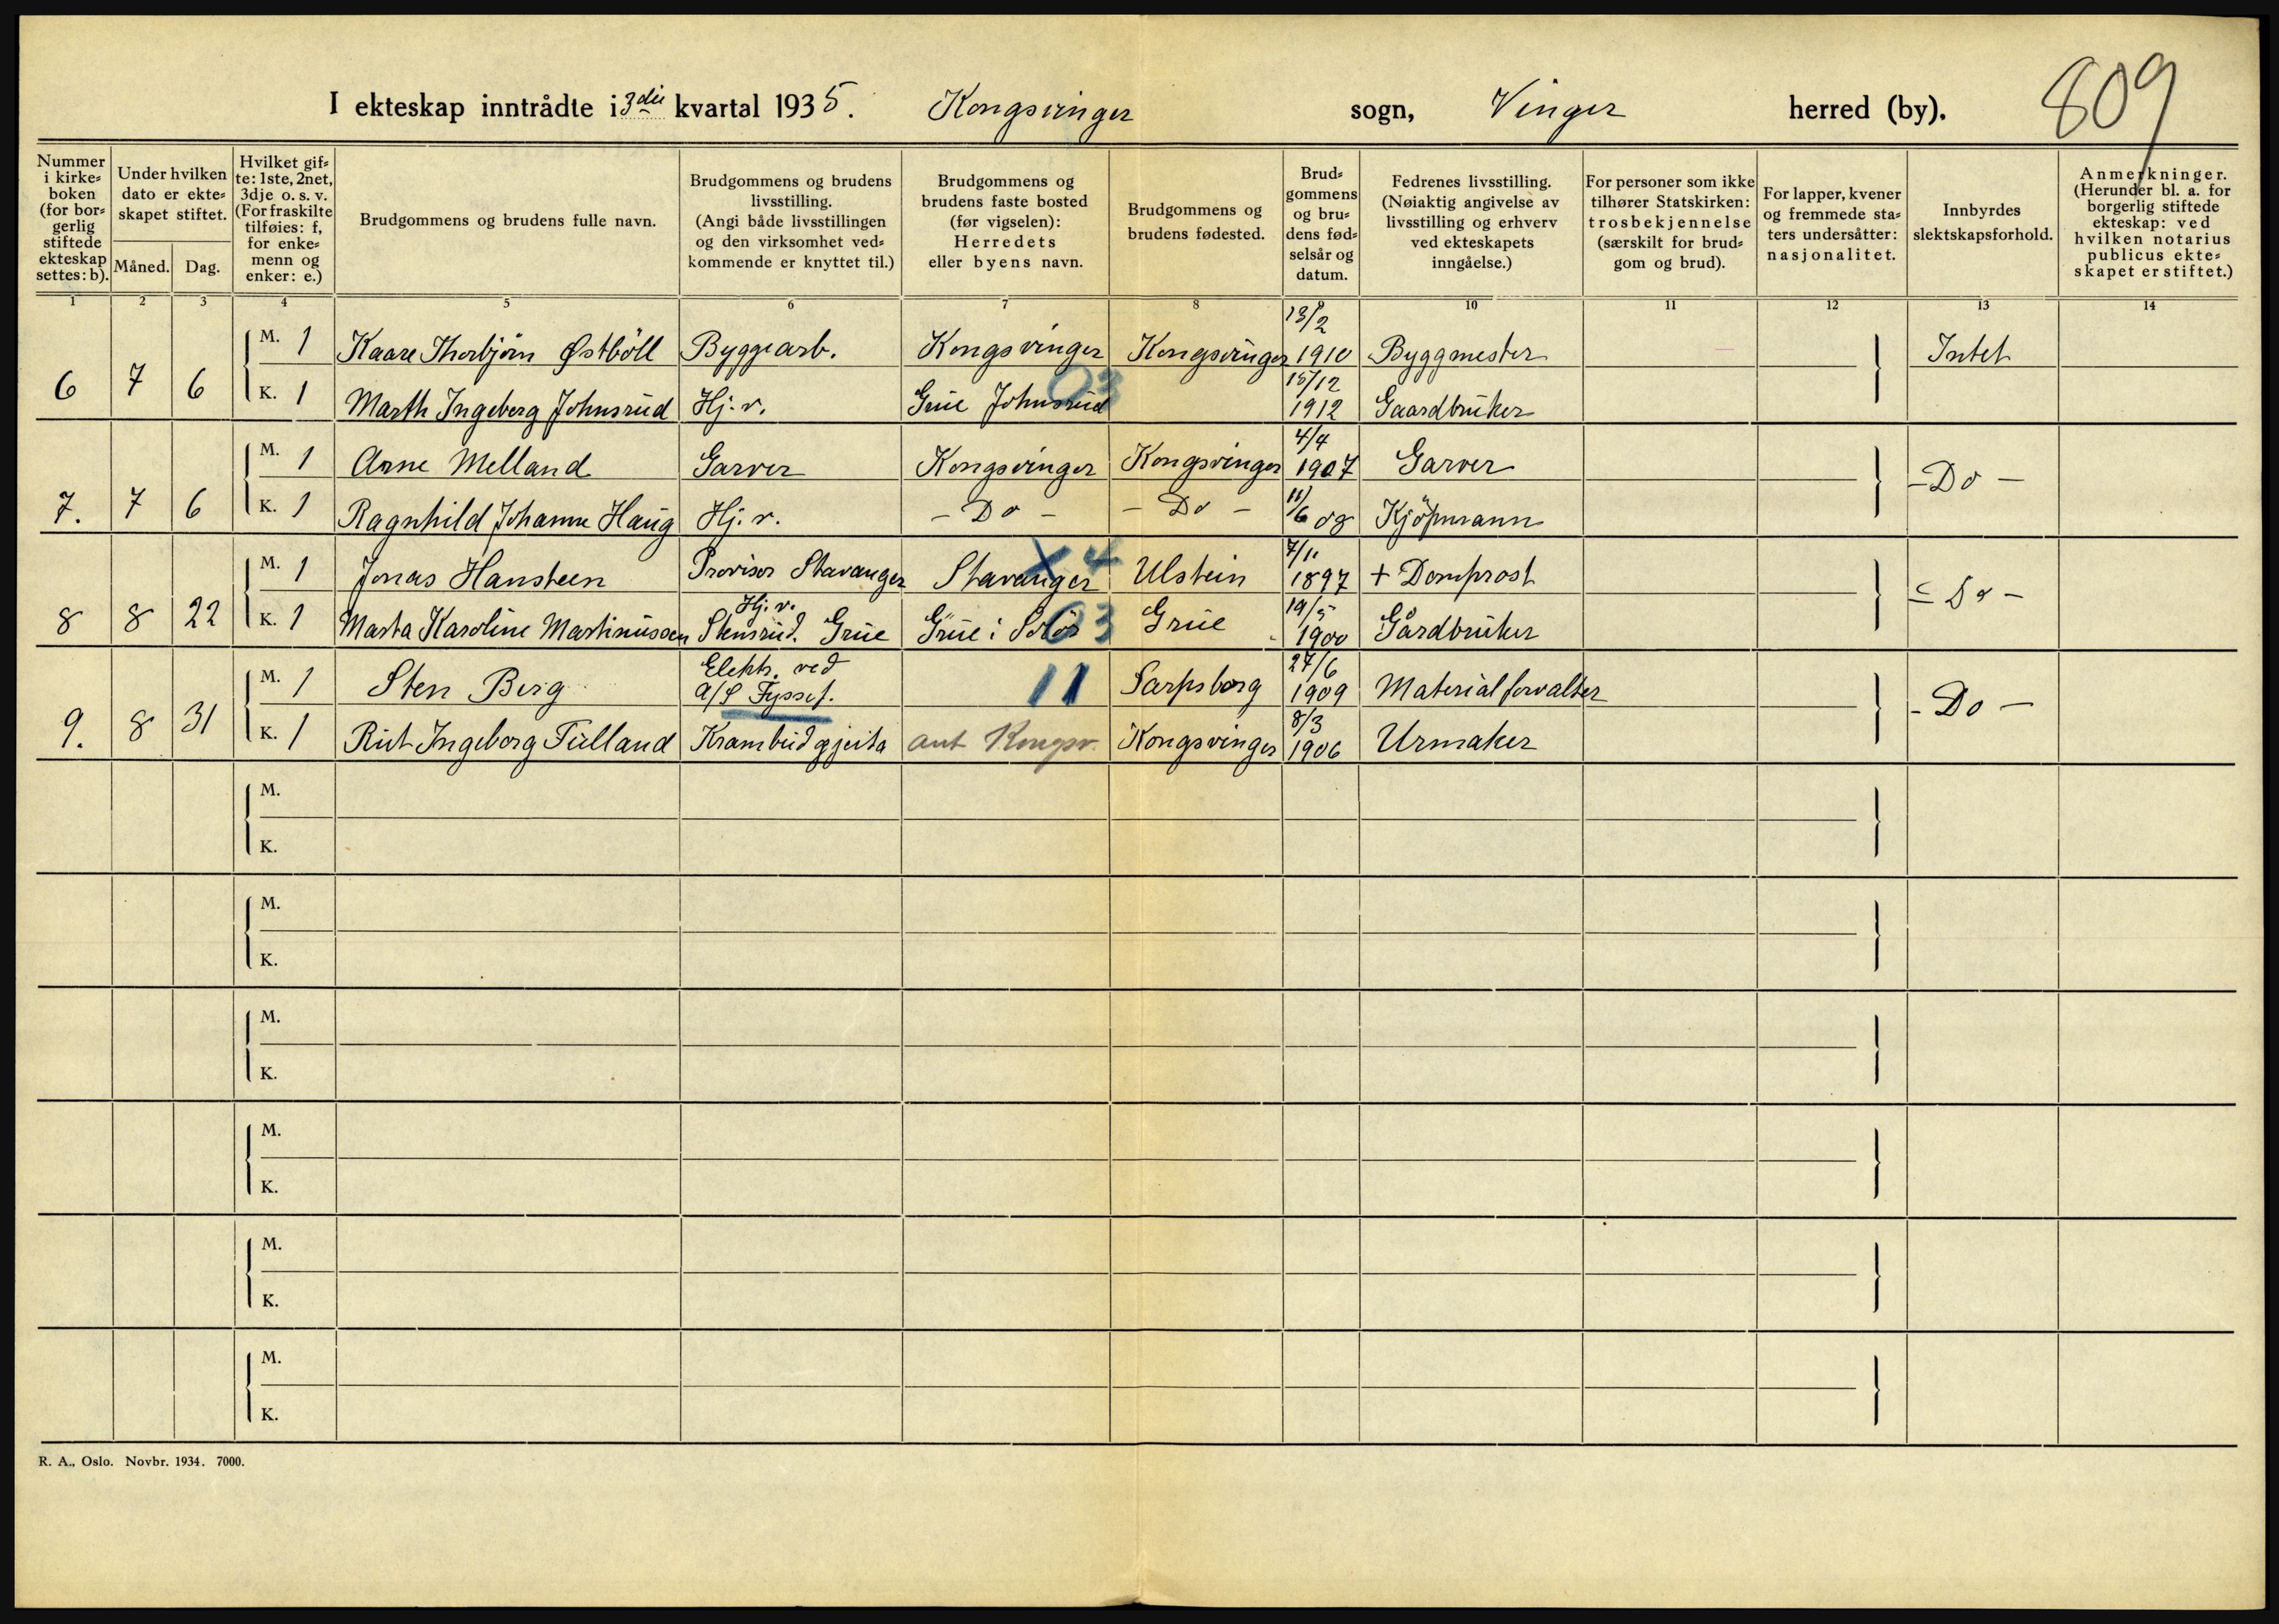 809
I ekteskap inntrådte i 3die kvartal 1935. Kongsvinger sogn, Vinger herred (by).
Nummer i kirke= boken (for bor= gerlig stiftede ekteskap settes: b).
Under hvilken dato er ekte= skapet stiftet.
Måned. Dag.
Hvilket gif= te: 1ste, 2net, 3dje o. s. v. (For fraskilte tilføies: f, for enke= menn og enker: e.)
Brudgommens og brudens fulle navn.
Brudgommens og brudens livsstilling. (Angi både livsstillingen og den virksomhet ved= kommende er knyttet til.)
Brudgommens og brudens faste bosted (før vigselen): Herredets eller byens navn.
Brudgommens og brudens fødested.
Brud= gommens og bru= dens fød= selsår og datum.
Fedrenes livsstilling. (Nøiaktig angivelse av livsstilling og erhverv ved ekteskapets inngåelse.)
For personer som ikke tilhører Statskirken: trosbekjennelse (særskilt for brud= gom og brud).
For lapper, kvener og fremmede sta= ters undersåtter: nasjonalitet.
Innbyrdes slektskapsforhold.
Anmerkninger. (Herunder bl. a. for borgerlig stiftede ekteskap: ved hvilken notarius publicus ekte= skapet er stiftet.)
1 2 3 4 5 6 7 8 9 10 11 12 13 14
6 7 6 M. 1 Kaare Thorbjörn Østböll Byggearb. Kongsvinger Kongsvinger 13/2 1910 Byggmester Intet
K. 1 Marth Ingeborg Johnsrud Hj. v. Grue Johnsrud 03 15/12 1912 Gaardbruker
7. 7 6 M. 1 Arne Melland Garver Kongsvinger Kongsvinger 4/4 1907 Garver – Do –
K. 1 Ragnhild Johanne Haug Hj. v. – Do – – Do – 11/6 08 Kjöpmann
8 8 22 M. 1 Jonas Hansteen Provisor Stavanger Stavanger X 4 Ulstein 7/11 1897 + Domprost – Do –
K. 1 Marta Karoline Martinussen Hj. v. Stensrud. Grue Grue i Solør 03 Grue 19/5 1900 Gårdbruker
9. 8 31 M. 1 Sten Berg Elektr. ved A/S Fyssef. 11 Sarpsborg 27/6 1909 Materialforvalter – Do –
K. 1 Rut Ingeborg Fulland Krambudgjeita ant Kongsv. Kongsvinger 8/3 1906 Urmaker
M.
K.
M.
K.
M.
K.
M.
K.
M.
K.
M.
K.
R. A., Oslo. Novbr. 1934. 7000.